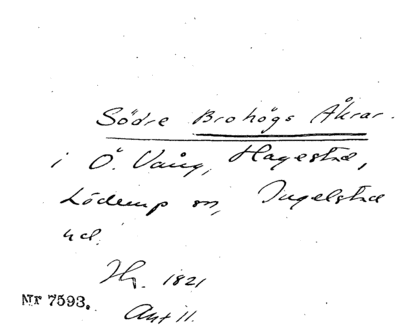 Södre Brohögs Åkrar.
i Ö. Vång, Hagestad,
Löderup sn, Ingelstad
hd.
Hr. 1821
Akt 11.
Nr 7593.